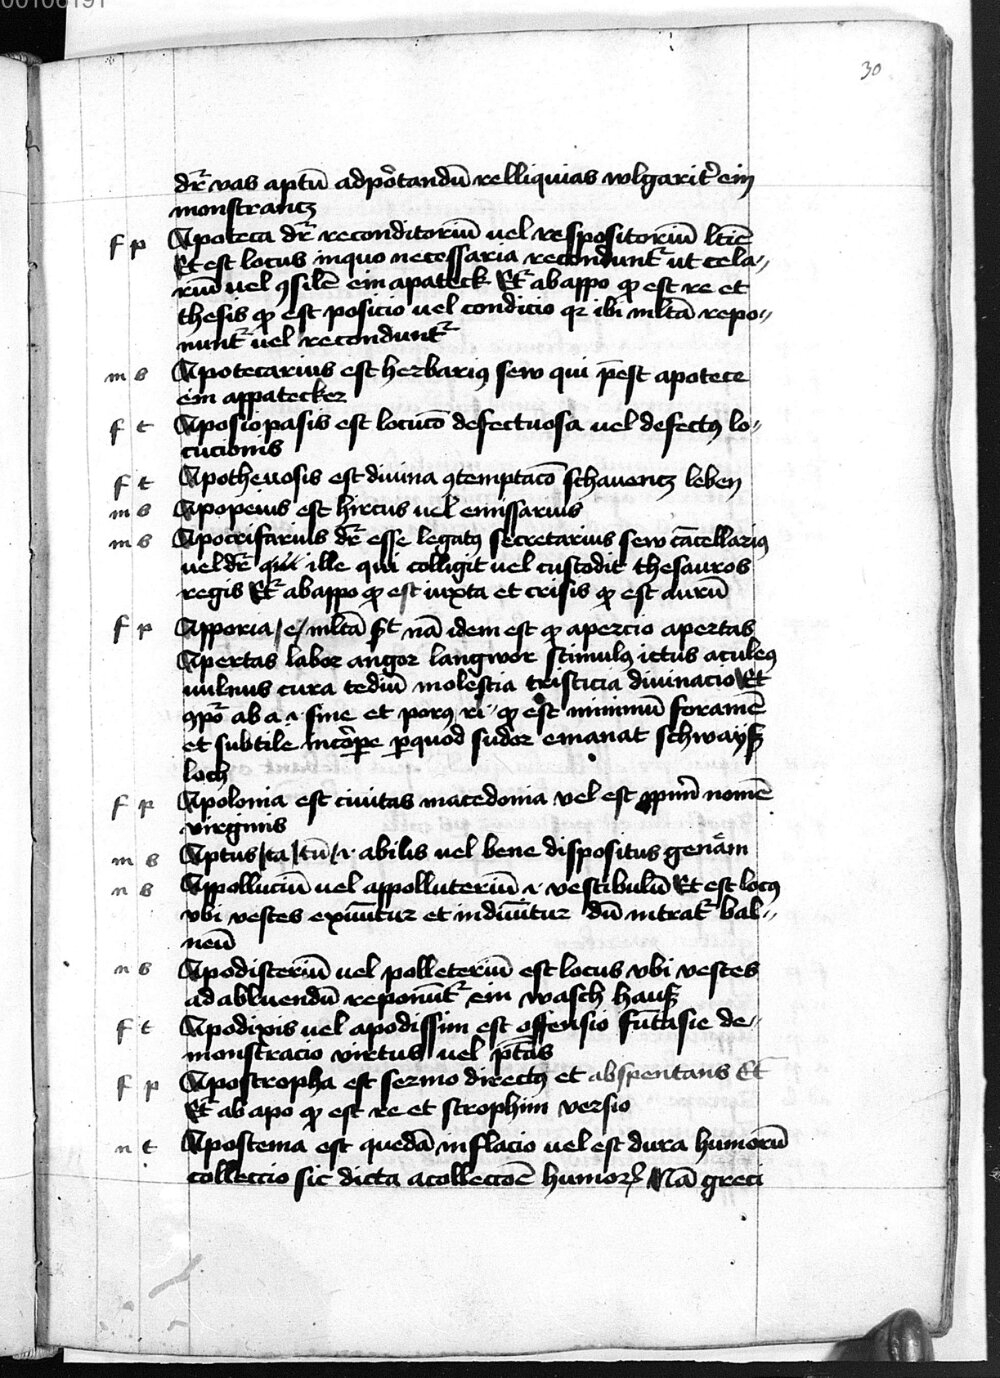 00106191
30
dr̄ vas aptū adportandū relliquias wlgarit̉ ein
monstrantz
f p Apoteca dr̄ reconditoriū uel respositoriū
Et est locus inquo necessaria recondunt̄ ut cela-
riū uel ꝯsilē ein apateck Et̄ ab appo qd̄ est re et
thesis qd̄ est posicio uel condicio qr ibi mltā repo-
nunt̄ uel recondunt̄
m s Apotecarius est herbariꝯ sew qui p̄est apotece
ein appatecker
f t Aposiopasis est locucō defectuosa uel defectꝯ lo-
cucionis
f t Apotheuosis est diuina ꝯtemptacō schauentz leben
m s Apopeius est hircus uel emissarius
m s Apocrisarius dr̄ esse legatꝯ secretarius sew cācellariꝯ
uel dr̄ ille qui colligit uel custodit thesauros
regis Et̄ ab appo qd̄ est iuxta et crisis qd̄ est aurū
f p Apporia /e/ mltā sͥt nā idem est qd̄ apercio apertas
Apertas labor angor langwor stimulꝯ ictus aculeꝯ
uulnus cura tediū molestia tristicia diuinacio Et
ꝯpō ab a i sine et porꝯ ri qd̄ est minimū foramē
et subtile incorꝑe ꝑquod sudor emanat schwayß
loch
f p Apolonia est ciuitas macedonia vel est ꝓpriū nomē
virginis
m s Aptus /ta /tū /i abilis uel bene dispositus genam
n s Appolluciū uel appolluteriū i vestibulū Et est locꝯ
vbi vestes exuūtur et induūtur dū intrat̄ bal-
neū
n s Apodisteriū uel polleteriū est locus vbi vestes
ad abluendū reponūt̄ ein wasch hauß
f t Apodixis uel apodissim est offensio fūtasie de-
monstracio virtus uel p̄tās
f p Apostropha est sermo directꝯ et absentans Et̄
Et̄ ab apo qd̄ est re et strophim versio
n t Apostema est quedā inflacio uel est dura humorū
colleccio sic dicta a collectōe humorꝝ Nā greci